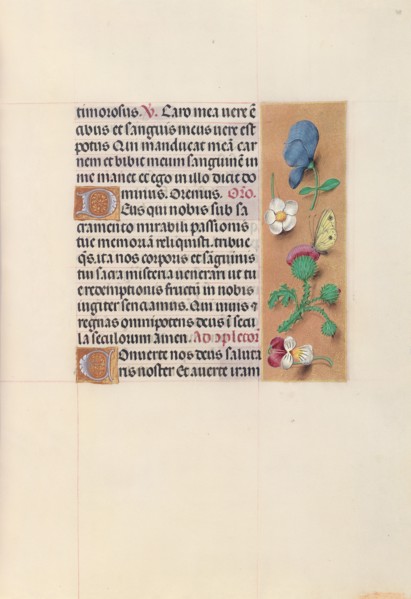 timorosus. V. Caro mea vere ē
cibus et sanguis meus vere est
potus Qui manducat meā car
nem et bibit meum sanguinē in
me manet et ego in illo dicit do
minus. Oremus. Oro.
Deus qui nobis sub sa
cramento mirabili passionis
tue memoriā reliquisti. tribue
qs. ita nos corporis et sāguinis
tui sacra misteria venerari ut tu
e redemptionis fructū in nobis
iugiter senciamus. Qui vivis et
regnas omnipotens deus ī secu
la seculorum amen. Ad cōpletoriū
Converte nos deus saluta
ris noster Et averte iram